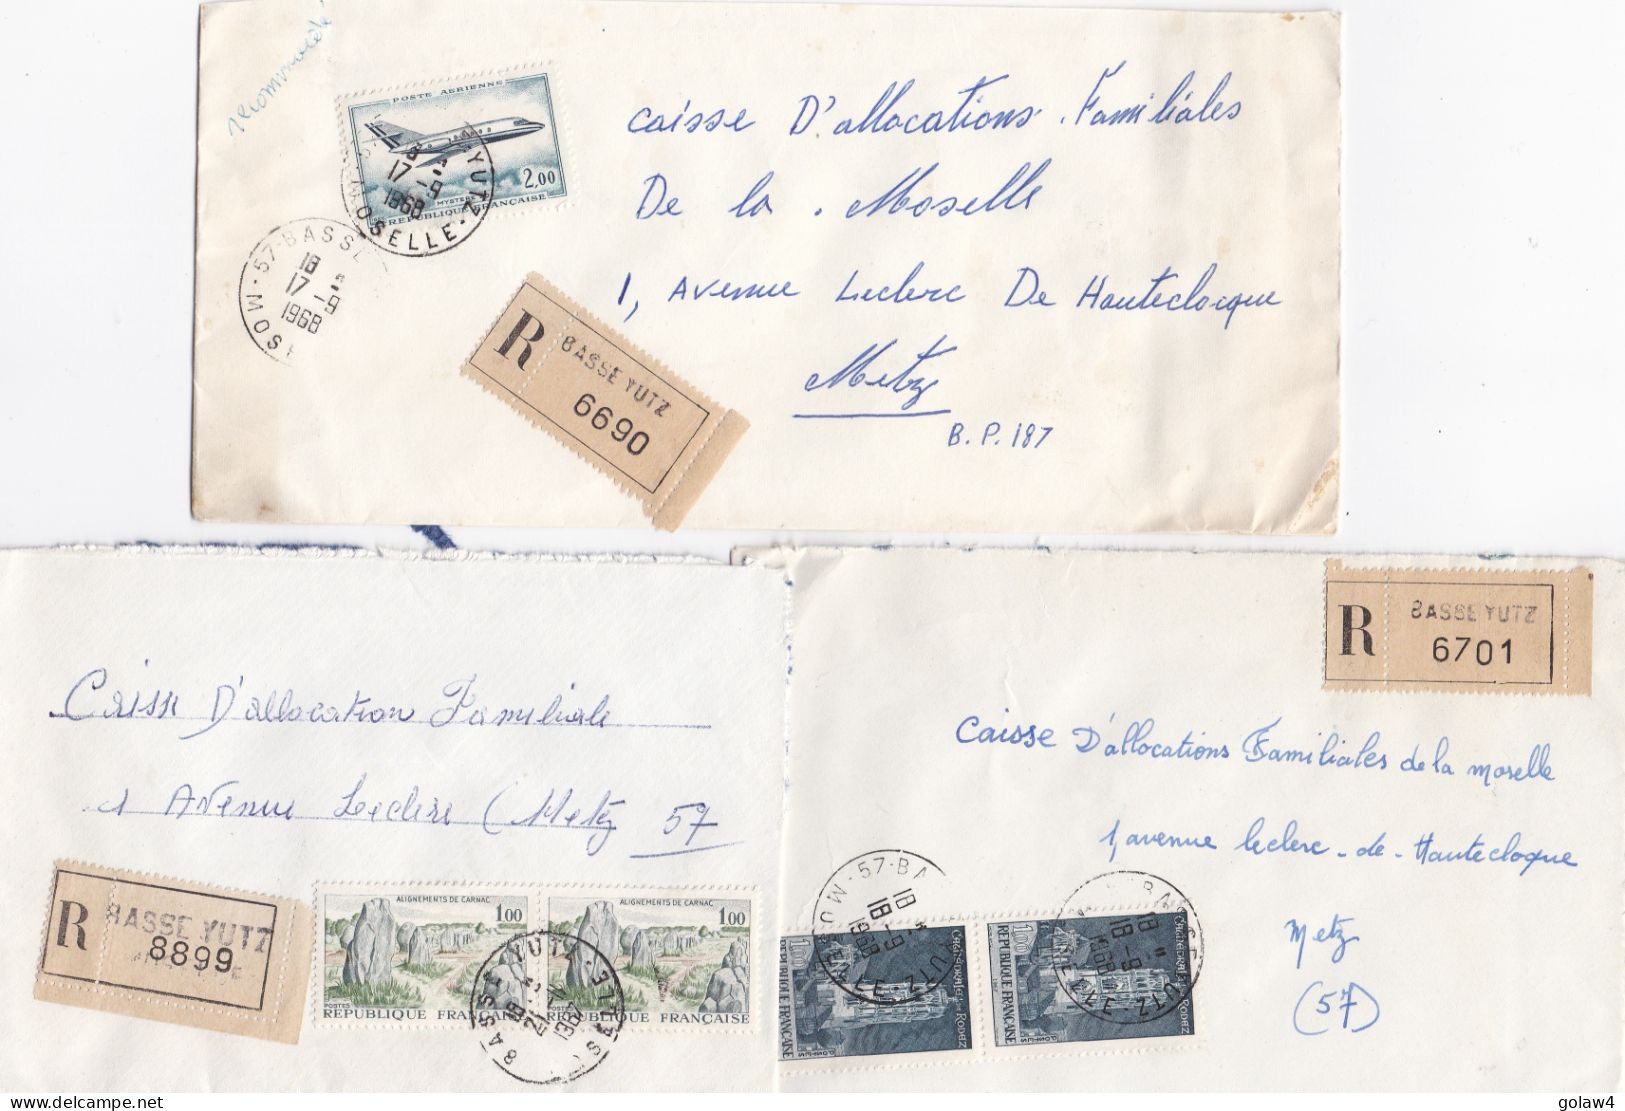 recommandé
POSTE AERIENNE
2,00
MYSTERE 20
REPUBLIQUE FRANÇAISE
YUTZ
MOSELLE
17-9
1968
57-BASSE
18
17-9
1968
MOSE
Caisse D'allocations Familiales
De la Moselle
1, Avenue Leclerc De Hauteclocque
Metz
B.P. 187
R
BASSE YUTZ
6690
Caisse D'allocation Familiale
1 Avenue Leclerc (Metz 57
R
BASSE YUTZ
8899
ALIGNEMENTS DE CARNAC
1,00
POSTES
REPUBLIQUE FRANÇAISE
ALIGNEMENTS DE CARNAC
1,00
REPUBLIQUE FRANÇAISE
BASSE YUTZ
R
BASSE YUTZ
6701
Caisse D'allocations Familiales de la Moselle
1, avenue Leclerc-de-Hautecloque
Metz
(57)
57-BA
18
18-9
1968
MOSELLE
YUTZ
1,00
REPUBLIQUE FRANÇAISE
RODEZ
POSTES
18
18-9
1968
1,00
REPUBLIQUE FRANÇAISE
CATHEDRALE DE RODEZ
POSTES
golaw4